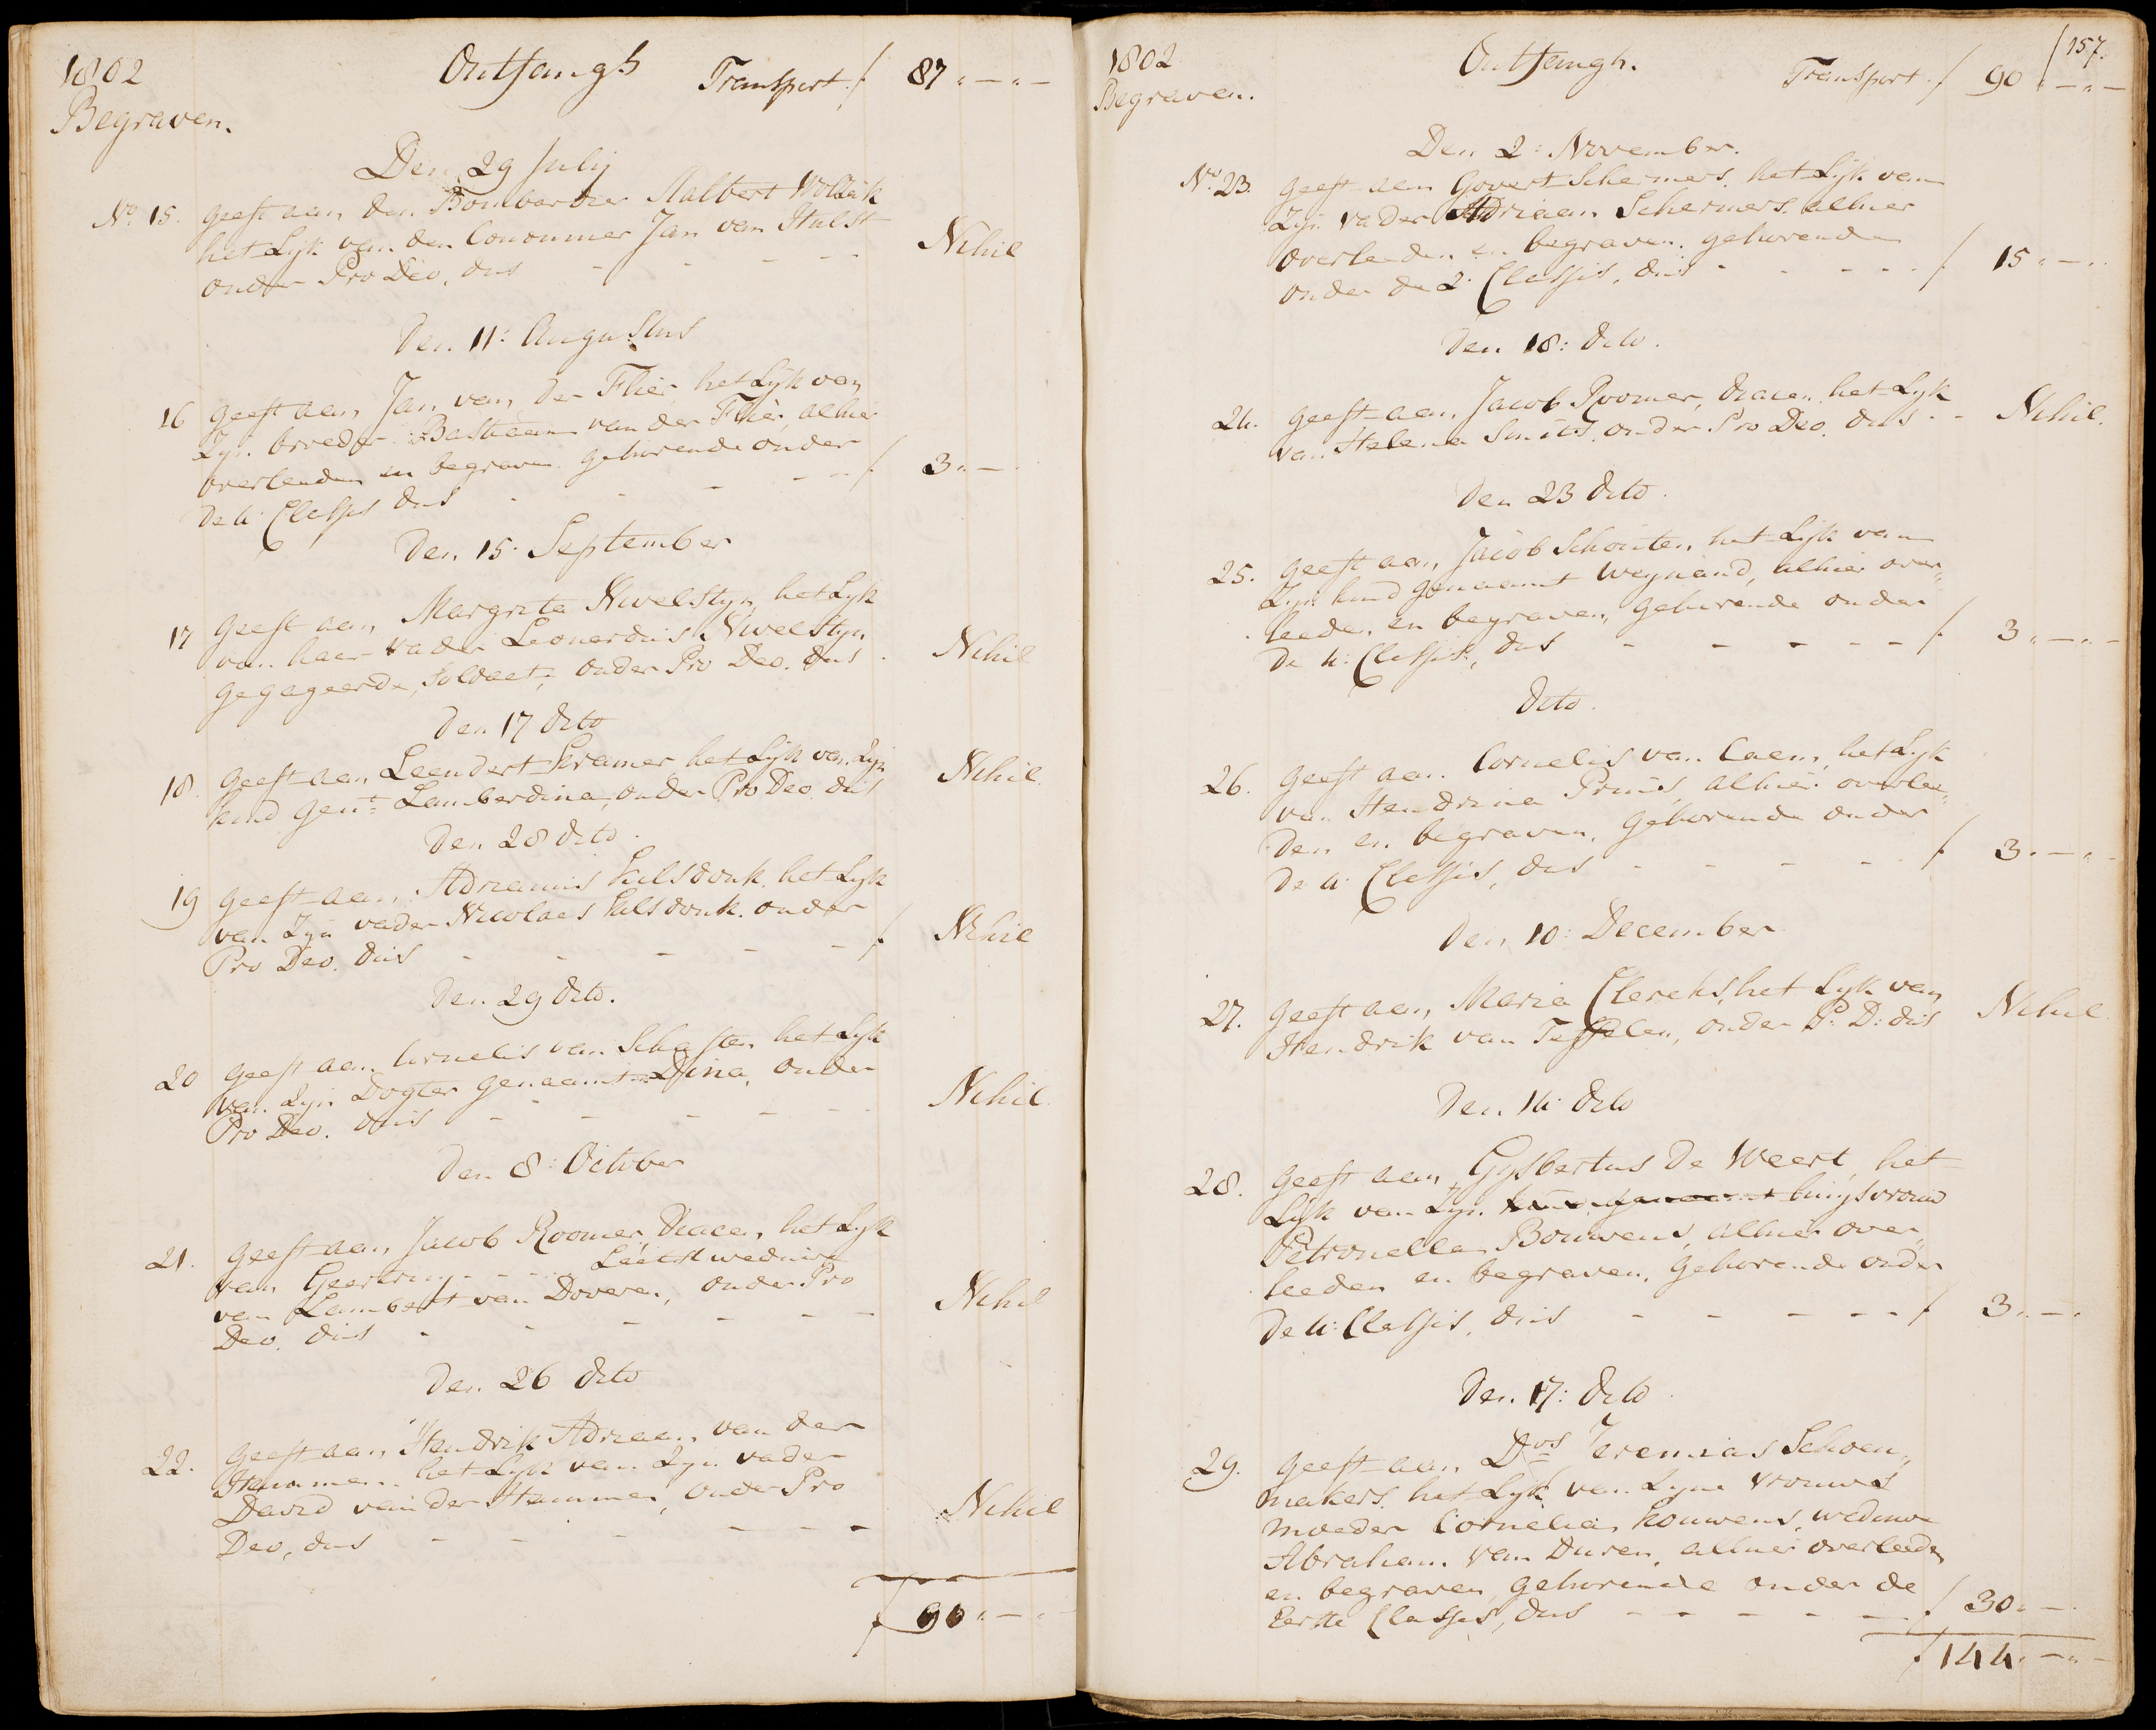 1802 Ontfangh Transport ƒ 87 „ — „ —
Begraven.
Den 29 Julij
No 15. geeft aan den Bombardier Aalbert Wollik
het Lijk van den Canonnier Jan van Hulst
onder Pro Deo, dus - - - - - Nihil
Den 11: Augustus
16 geeft aan Jan van der Flier het Lijk van
Zijn broeder Bastiaan van der Flier, alhier
overleeden en begraven gehorende onder
de 4: Classis dus - - - - - ƒ 3 „ —
Den 15: September
17 geeft aan Margrita Nivelstyn, het Lijk
van haar vader Leonardus Nivelstyn
gegageerde, Soldaat, onder Pro Deo. dus - Nihil
Den 17 dito
18. geeft aan Leendert Kramer het Lijk van Zijn
kind gent Lamberdina, onder Pro Deo. dus Nihil
Den 28 dito.
19 geeft aan Adrianus Hulsdonk, het Lijk
van Zijn vader Nicolaes Hulsdonk. onder
Pro Deo. dus - - - - - ƒ Nihil
Den 29 dito.
20 geeft aan Cornelis van Schaften het Lijk
van Zijn Dogter genaamt Dina, onder
Pro Deo. dus - - - - - Nihil
Den 8: October
21. geeft aan Jacob Roomer, Diacen, het Lijk
van Geertruij - - - Leest weduwe
van Lambert van Doveren, onder Pro
Deo. dus - - - - - Nihil
Den 26 dito
22. geeft aan Hendrik Adriaan van der
Hammen. het Lijk van Zijn vader
David van der Hammen, onder Pro
Deo, dus - - - - - Nihil
ƒ 90 „ — „ —
157.
1802. Ontfangh. Transport ƒ 90 „ — „ —
Begraven.
Den 2: November.
No. 23. geeft aan Govert Schermers. het Lijk van
Zijn vader Adriaan Schermers. alhier
overleeden en begraven. gehorende
onder de 2: Classis, dus - - - - ƒ 15 „ —
Den 18: dito.
24. geeft aan Jacob Roomer, diacen. het Lijk
van Helena Smits. onder Pro Deo. dus - - Nihil.
Den 23 dito.
25. geeft aan Jacob Schouten, het Lijk van
Zijn kind genaamt Weynand, alhier over„
leeden en begraven, gehorende onder
de 4: Classis, dus - - - - - ƒ 3 „ — „ —
dito.
26. geeft aan Cornelis van Caem, het Lijk
van Hendrina Pruis, alhier overlee„
den en begraven. gehorende onder
de 4: Classis, dus - - - - ƒ 3 „ — „ —
Den 10: December
27. geeft aan, Maria Clercks, het Lijk van
Hendrik van Tesselen, onder P: D: dus Nihil.
Den 14: dito
28. geeft aan Gysbertus de Weert, het
Lijk van Zijn kind genaamt huijsvrouw
Petronella Bouwens, alhier over„
leeden en begraven, gehorende onder
de 4: Classis, dus - - - - - ƒ 3 „ —
Den 17: dito.
29. geeft aan Dos Jeremias Schoen„
makers. het Lijk van Zijne Vrouws
moeder Cornelia Kouwens, weduwe
Abraham van Duren, alhier overleeden
en begraven, gehorende onder de
Eerste Classis, dus - - - - - ƒ 30 „ —
ƒ 144 „ — „ —